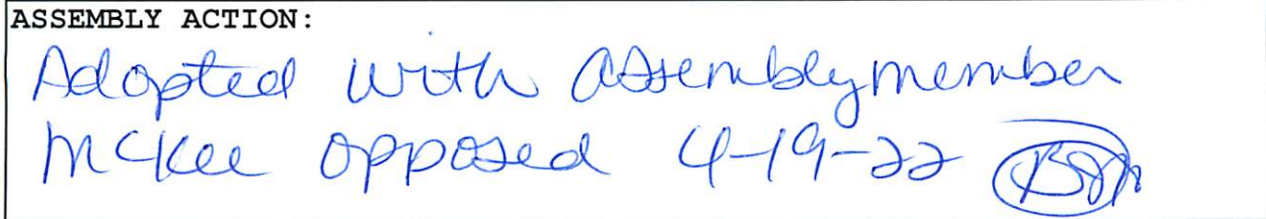 ASSEMBLY ACTION:
Adopted with Assemblymember
McKee opposed 4-19-22